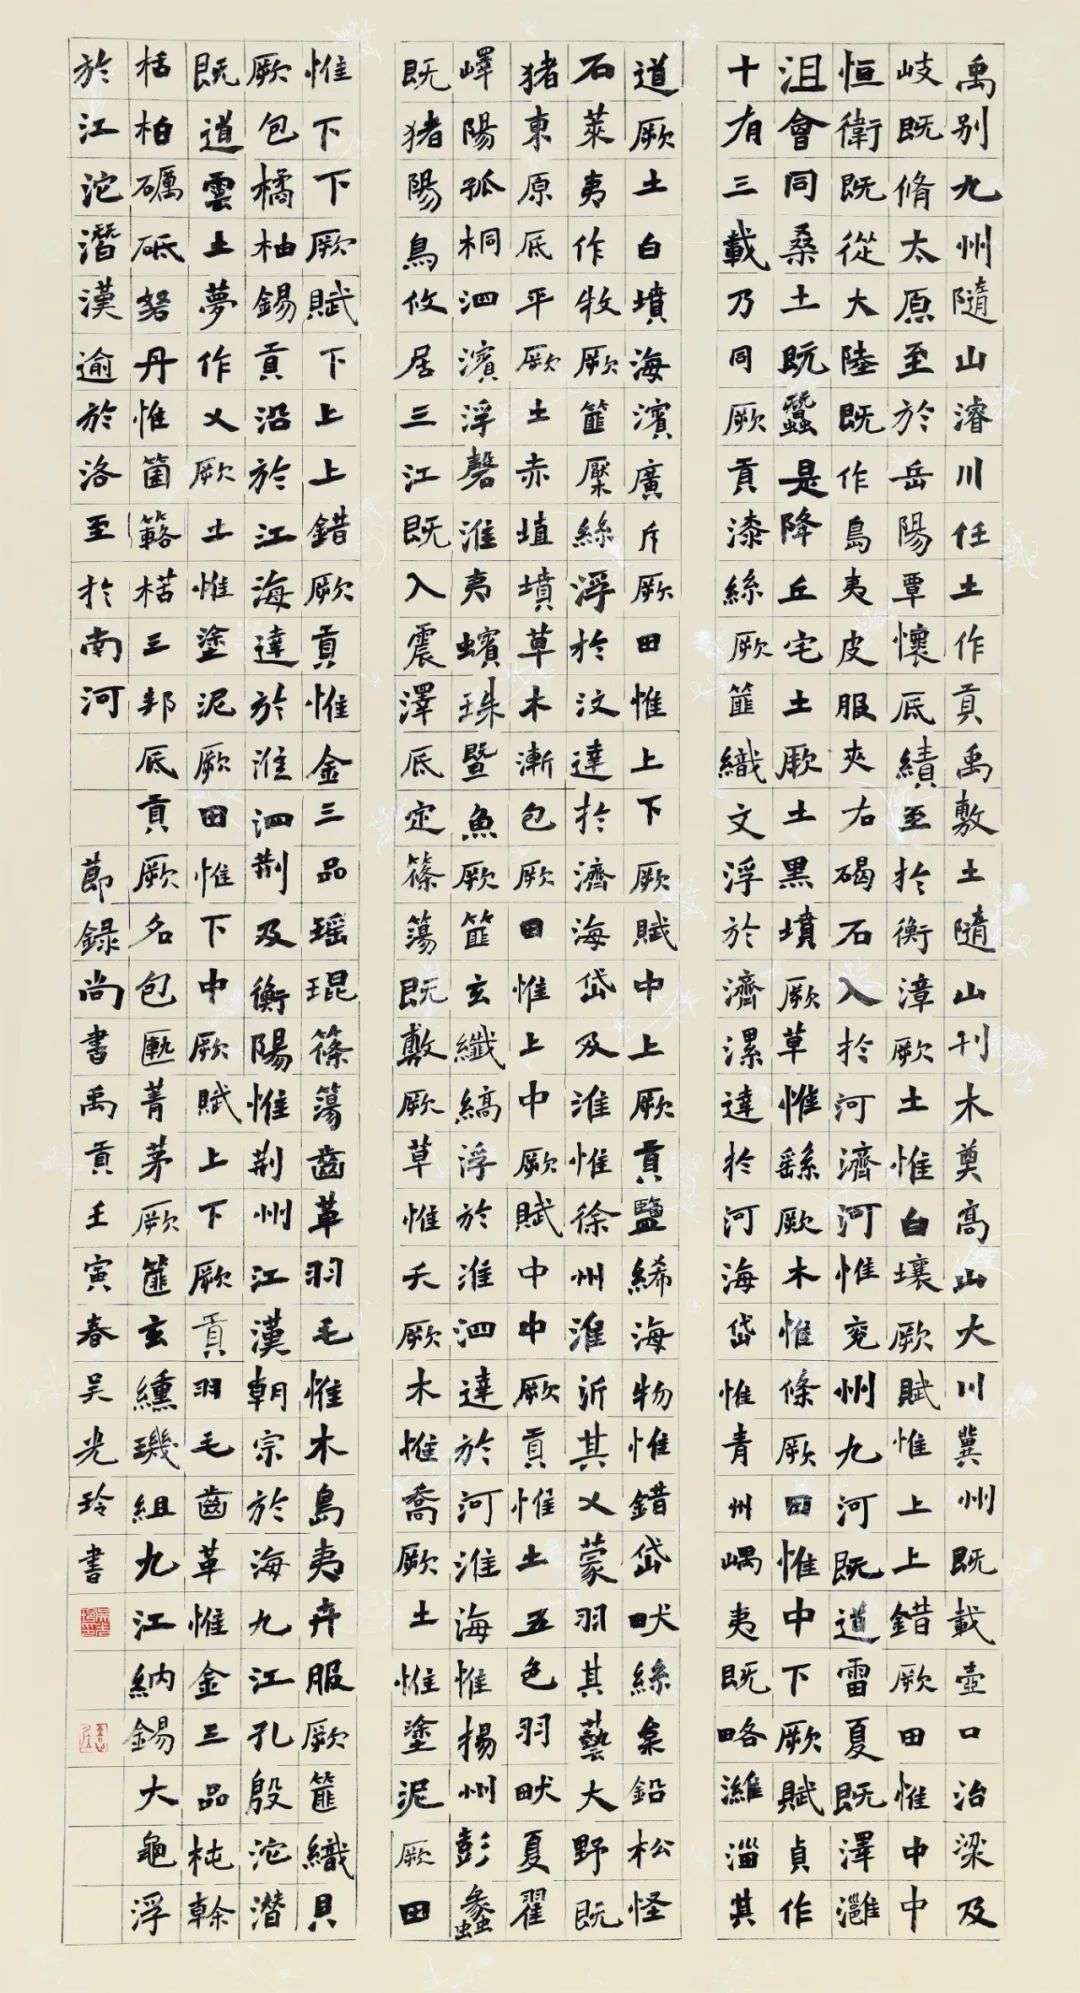 禹别九州隨山濬川任土作貢禹敷土隨山刊木奠高山大川冀州既載壺口治梁及
岐既脩太原至於岳陽覃懷厎績至於衡漳厥土惟白壤厥賦惟上上錯厥田惟中中
恒衛既從大陸既作島夷皮服夾右碣石入於河濟河惟兖州九河既道雷夏既澤灉
沮會同桑土既蠶是降丘宅土厥土黑墳厥草惟繇厥木惟條厥田惟中下厥賦貞作
十有三載乃同厥貢漆絲厥篚織文浮於濟漯達於河海岱惟青州嵎夷既略濰淄其
道厥土白墳海濱廣斥厥田惟上下厥賦中上厥貢鹽絺海物惟錯岱畎絲枲鉛松怪
石萊夷作牧厥篚檿絲浮於汶達於濟海岱及淮惟徐州淮沂其乂蒙羽其藝大野既
猪東原厎平厥土赤埴墳草木漸包厥田惟上中厥賦中中厥貢惟土五色羽畎夏翟
嶧陽孤桐泗濱浮磬淮夷蠙珠暨魚厥篚玄纖縞浮於淮泗達於河淮海惟揚州彭蠡
既猪陽鳥攸居三江既入震澤厎定篠簜既敷厥草惟夭厥木惟喬厥土惟塗泥厥田
惟下下厥賦下上上錯厥貢惟金三品瑶琨篠簜齒革羽毛惟木島夷卉服厥篚織貝
厥包橘柚錫貢沿於江海達於淮泗荆及衡陽惟荆州江漢朝宗於海九江孔殷沱潜
既道雲土夢作乂厥土惟塗泥厥田惟下中厥賦上下厥貢羽毛齒革惟金三品杶榦
栝柏礪砥砮丹惟箘簵楛三邦厎貢厥名包匭菁茅厥篚玄纁璣組九江納錫大龜浮
於江沱潛漢逾於洛至於南河 節録尚書禹貢壬寅春吴光玲書